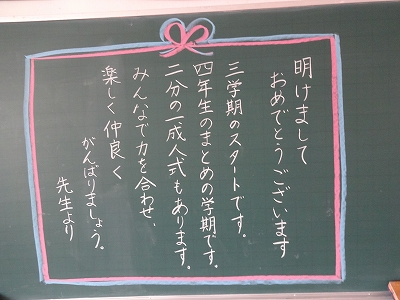 明けまして
おめでとうございます
三学期のスタートです。
四年生のまとめの学期です。
二分の一成人式もあります。
みんなで力を合わせ、
楽しく仲良く
がんばりましょう。
先生より